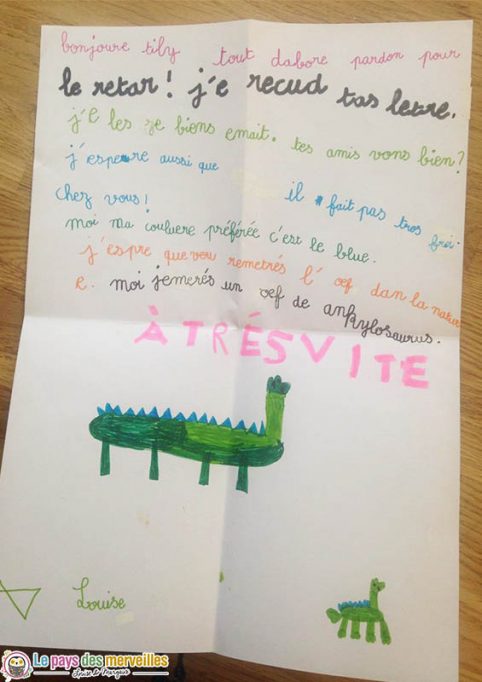 bonjoure tily tout dabore pardon pour
le retar! j'e recud tas letre.
j'e les ze biens emait. tes amis vons bien?
j'espere aussi que il fait pas tros frei.
chez vous!
moi ma couluere préférée c'est le blue.
j'espre que vou remetrés l'oef dan la nature
e. moi jemerés un oef de ankylosaurus.
À TRÉS VITE
Louise
Le pays des merveilles